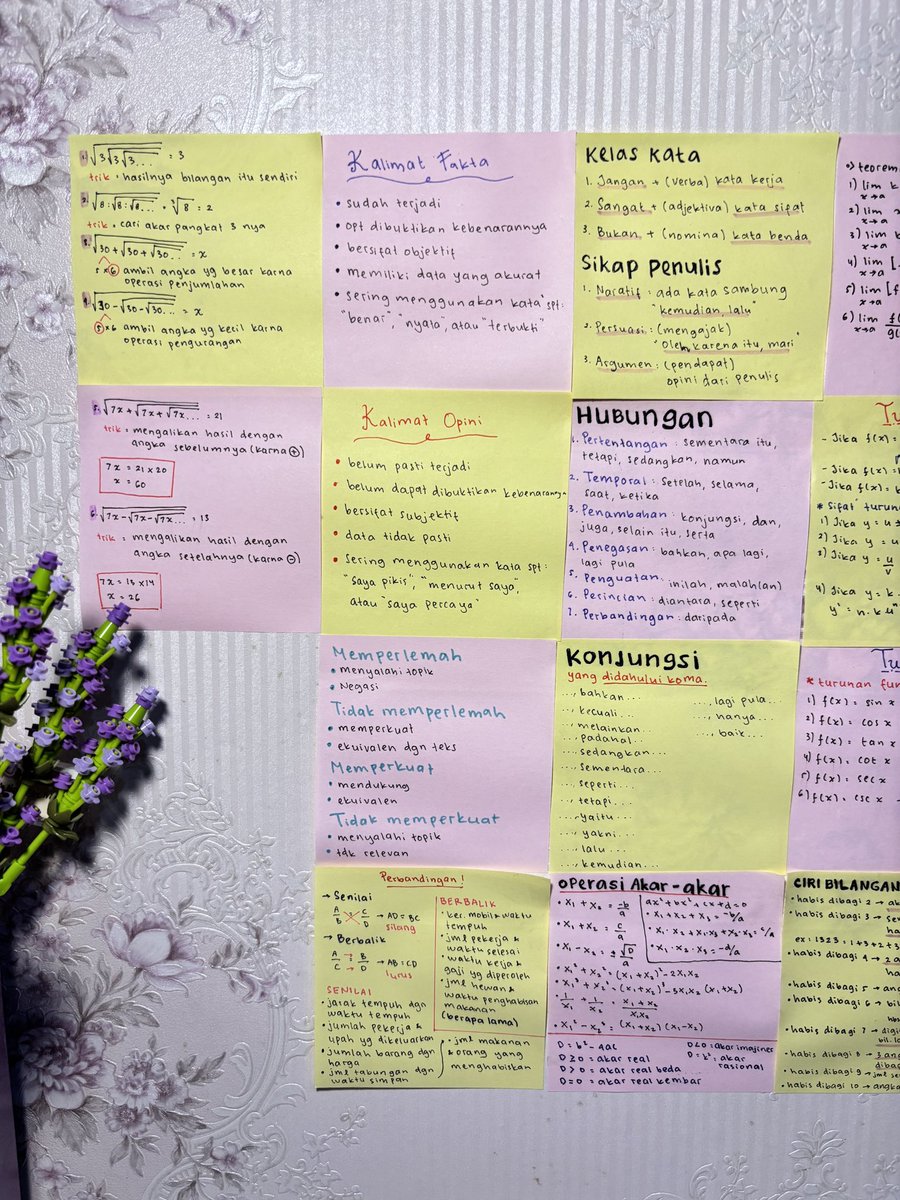 1. √3√3√3... = 3
trik : hasilnya bilangan itu sendiri
2. √8 : √8 : √8... = ³√8 = 2
trik : cari akar pangkat 3 nya
3. √30 + √30 + √30... = x
5 × 6 ambil angka yg besar karna
operasi penjumlahan
4. √30 - √30 - √30... = x
5 × 6 ambil angka yg kecil karna
operasi pengurangan
Kalimat Fakta
• sudah terjadi
• dpt dibuktikan kebenarannya
• bersifat objektif
• memiliki data yang akurat
• sering menggunakan kata" spt:
"benar", "nyata", atau "terbukti"
Kelas Kata
1. Jangan + (verba) kata kerja
2. Sangat + (adjektiva) kata sifat
3. Bukan + (nomina) kata benda
Sikap Penulis
1. Naratif : ada kata sambung
"kemudian, lalu"
2. Persuasi : (mengajak)
"Oleh karena itu, mari"
3. Argumen : (pendapat)
opini dari penulis
1) lim
x→a
2) lim
x→a
3) lim
x→a
4) lim
x→a
5) lim
x→a
6) lim
x→a
5. √7x + √7x + √7x... = 21
trik : mengalikan hasil dengan
angka sebelumnya (karna +)
7x = 21 x 20
x = 60
6. √7x - √7x - √7x... = 13
trik : mengalikan hasil dengan
angka setelahnya (karna -)
7x = 13 x 14
x = 26
Kalimat Opini
• belum pasti terjadi
• belum dapat dibuktikan kebenarannya
• bersifat subjektif
• data tidak pasti
• sering menggunakan kata spt:
"saya pikir", "menurut saya",
atau "saya percaya"
Hubungan
1. Pertentangan : sementara itu,
tetapi, sedangkan, namun
2. Temporal : Setelah, selama,
saat, ketika
3. Penambahan : konjungsi, dan,
juga, selain itu, serta
4. Penegasan : bahkan, apa lagi,
lagi pula
5. Penguatan : inilah, malah(an)
6. Perincian : diantara, seperti
7. Perbandingan : daripada
- Jika f(x) =
- Jika f(x) =
- Jika f(x) =
* Sifat" turun
1) Jika y = u ±
2) Jika y = u
3) Jika y = u/v
4) Jika y = k.
y' = n. k u
Memperlemah
• menyalahi topik
• Negasi
Tidak memperlemah
• memperkuat
• ekuivalen dgn teks
Memperkuat
• mendukung
• ekuivalen
Tidak memperkuat
• menyalahi topik
• tdk relevan
Konjungsi
yang didahului koma.
..., bahkan...
..., kecuali...
..., melainkan...
..., padahal...
..., sedangkan...
..., sementara...
..., seperti...
..., tetapi...
..., yaitu...
..., yakni...
..., lalu...
..., kemudian...
..., lagi pula...
..., hanya...
..., baik...
* turunan fun
1) f(x) = sin x
2) f(x) = cos x
3) f(x) = tan x
4) f(x) = cot x
5) f(x) = sec x
6) f(x) = csc x
Perbandingan!
→ Senilai
A/B = C/D → AD = BC
silang
→ Berbalik
A/C = B/D → AB = CD
lurus
SENILAI
• jarak tempuh dgn
waktu tempuh
• jumlah pekerja &
upah yg dikeluarkan
• jumlah barang dgn
harga
• jml tabungan dgn
waktu simpan
BERBALIK
• kec. mobil & waktu
tempuh
• jml pekerja &
waktu selesai
• waktu kerja &
gaji yg diperoleh
• jml hewan &
waktu penghabisan
makanan
(berapa lama)
• jml makanan
& orang yang
menghabiskan
Operasi Akar-akar
• x₁ + x₂ = -b/a
• x₁ + x₂ = c/a
• x₁ - x₂ = ± √D/a
ax³ + bx² + cx + d = 0
• x₁ + x₂ + x₃ = -b/a
• x₁·x₂ + x₁·x₃ + x₂·x₃ = c/a
• x₁·x₂·x₃ = -d/a
• x₁² + x₂² = (x₁ + x₂)² - 2x₁x₂
• x₁³ + x₂³ = (x₁ + x₂)³ - 3x₁x₂ (x₁ + x₂)
• 1/x₁ + 1/x₂ = x₁ + x₂/x₁x₂
• x₁² - x₂² = (x₁ + x₂)(x₁ - x₂)
D = b² - 4ac
D ≥ 0 = akar real
D > 0 = akar real beda
D = 0 = akar real kembar
D < 0 = akar imajiner
D = k² = akar
rasional
CIRI BILANGAN
• habis dibagi 2 →
• habis dibagi 3 →
ex : 1323 = 1+3+2+3
• habis dibagi 4 →
• habis dibagi 5 →
• habis dibagi 6 →
• habis dibagi 7 →
• habis dibagi 8 →
• habis dibagi 9 →
• habis dibagi 10 → angka